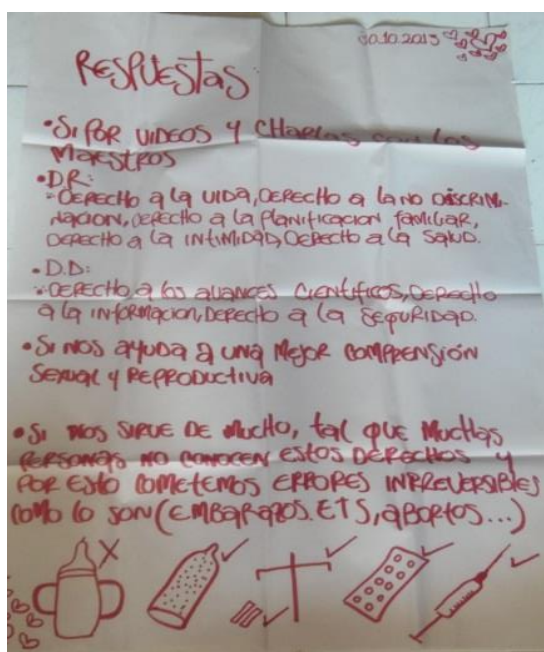 30.10.2015
RESPUESTAS
•Si POR VIDEOS Y CHARLAS con los
MAESTROS
•D.R:
-DERECHO a la VIDA, DERECHO a la NO DISCRIMI-
NACION, DERECHO a la Planificacion familiar,
DERECHO a la INTIMIDAD, DERECHO a la SALUD.
•D.D:
-DERECHO a los avances CIENTIFICOS, DERECHO
a la INFORMACION, DERECHO a la SEGURIDAD.
•Si NOS AYUDA a UNA MEJOR COMPRENSIÓN
SEXUAL Y REPRODUCTIVA
•Si NOS SIRVE DE MUCHO, tal QUE MUCHAS
PERSONAS NO CONOCEN ESTOS DERECHOS Y
POR ESTO COMETEMOS ERRORES INRREVERSIBLES
COMO LO SON (EMBARAZOS. ETS, ABORTOS...)